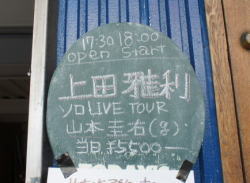 17:30 18:00
open start
上田 雅利
ソロ LIVE TOUR
山本 圭右(g)
当日 ¥5500—